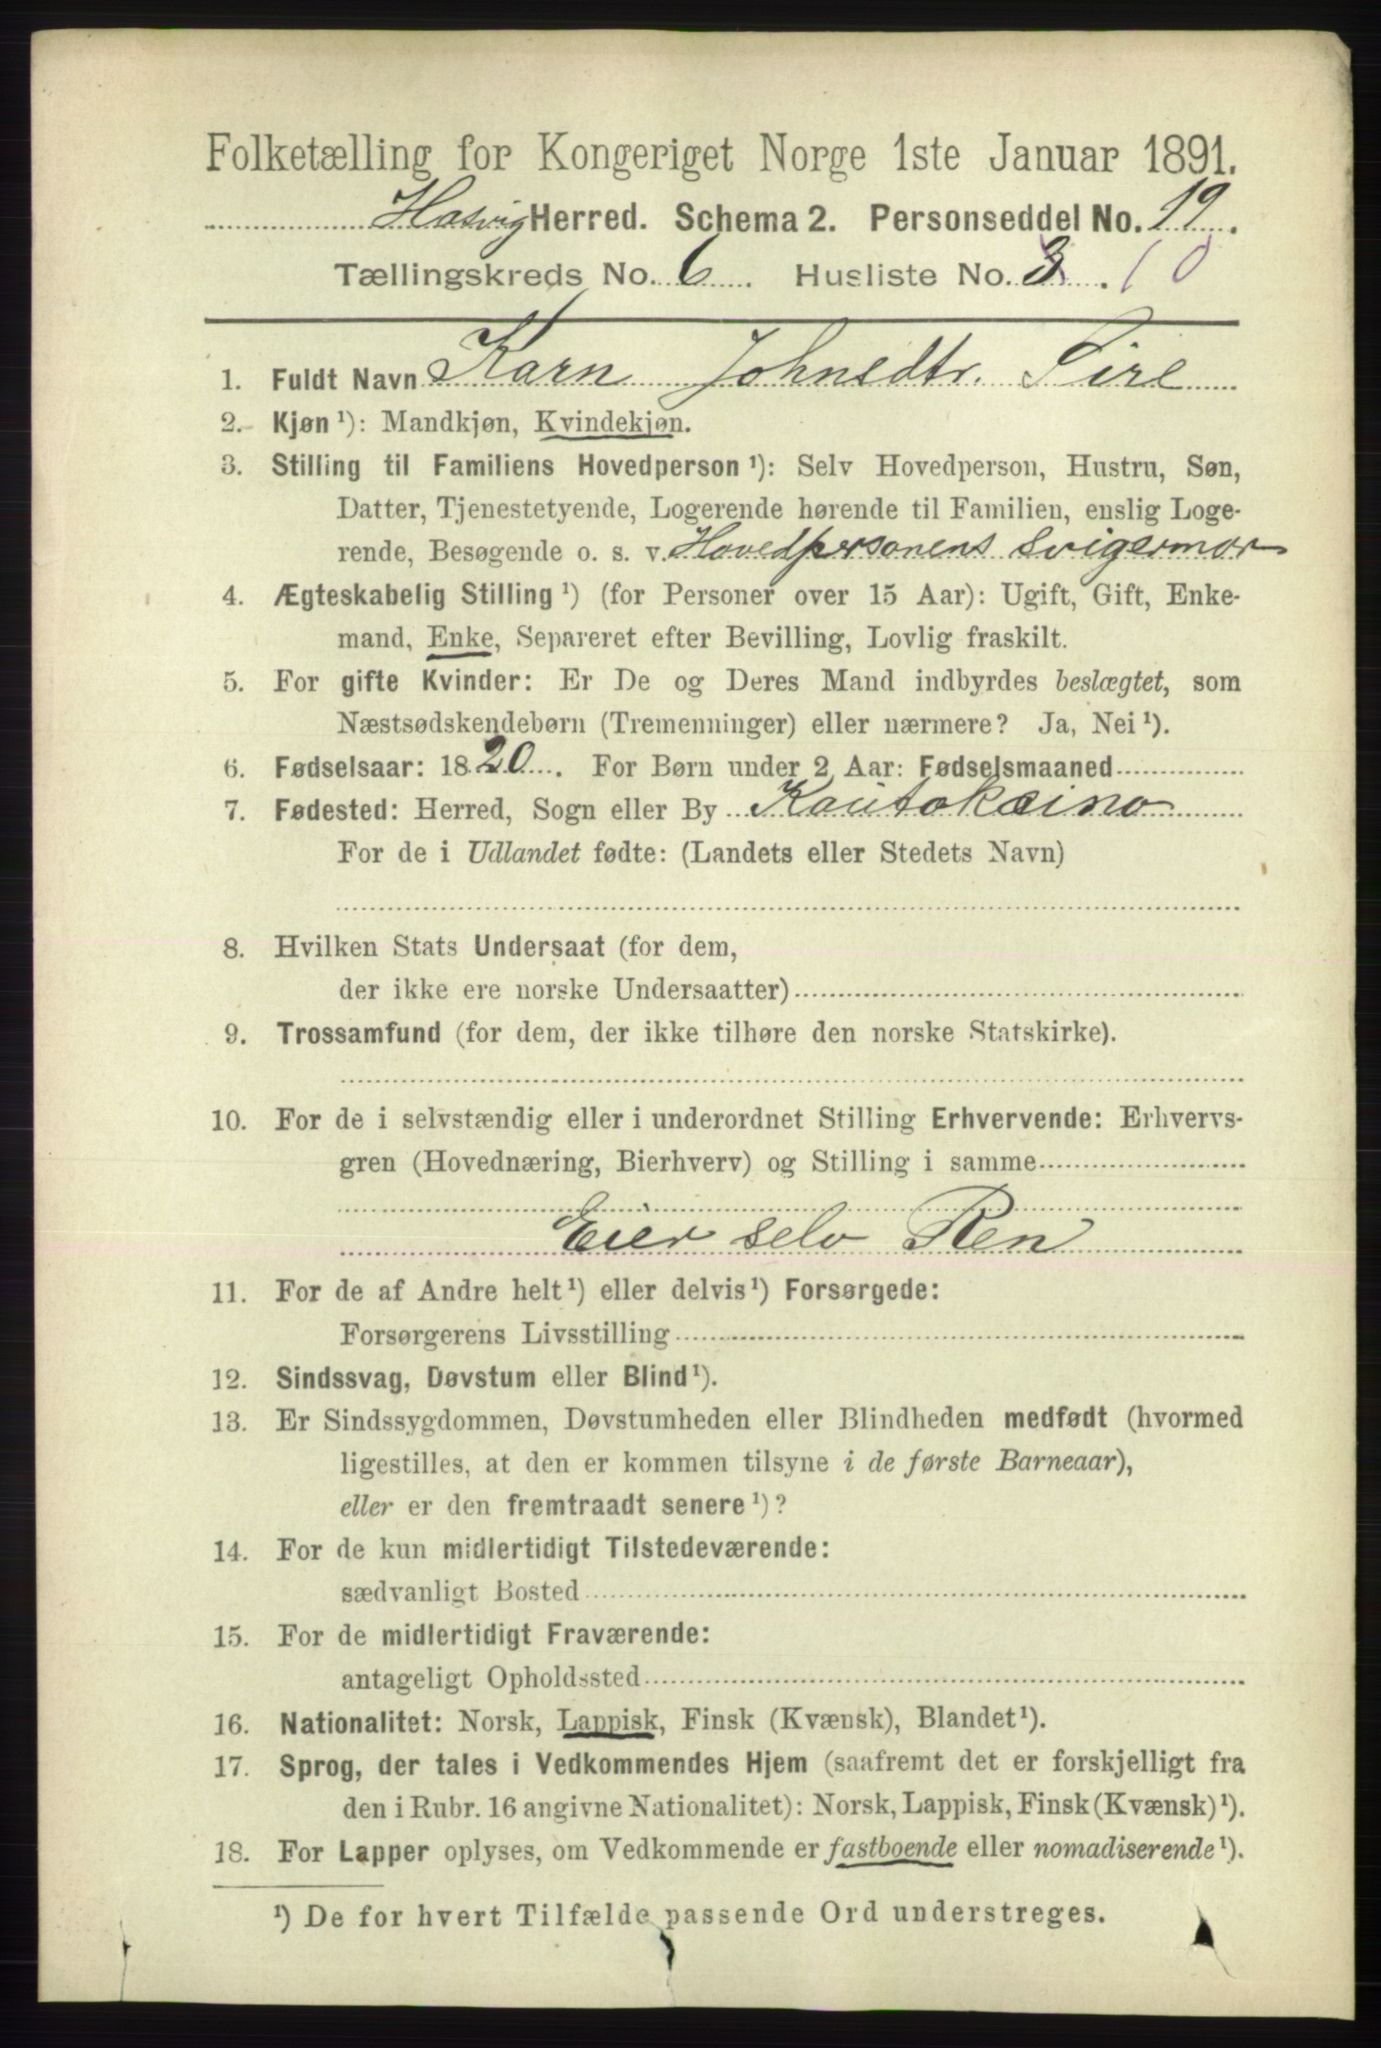 Folketælling for Kongeriget Norge 1ste Januar 1891.
Hasvig Herred. Schema 2. Personseddel No. 19.
Tællingskreds No. 6. Husliste No. 3. 10
1. Fuldt Navn Karn Johnsdtr. Pire
2. Kjøn ¹): Mandkjøn, Kvindekjøn.
3. Stilling til Familiens Hovedperson ¹): Selv Hovedperson, Hustru, Søn,
Datter, Tjenestetyende, Logerende hørende til Familien, enslig Loge-
rende, Besøgende o. s. v. Hovedpersonens svigermor
4. Ægteskabelig Stilling ¹) (for Personer over 15 Aar): Ugift, Gift, Enke-
mand, Enke, Separeret efter Bevilling, Lovlig fraskilt.
5. For gifte Kvinder: Er De og Deres Mand indbyrdes beslægtet, som
Næstsødskendebørn (Tremenninger) eller nærmere? Ja, Nei ¹).
6. Fødselsaar: 1820. For Børn under 2 Aar: Fødselsmaaned
7. Fødested: Herred, Sogn eller By Kautokeino
For de i Udlandet fødte: (Landets eller Stedets Navn)
8. Hvilken Stats Undersaat (for dem,
der ikke ere norske Undersaatter)
9. Trossamfund (for dem, der ikke tilhøre den norske Statskirke).
10. For de i selvstændig eller i underordnet Stilling Erhvervende: Erhvervs-
gren (Hovednæring, Bierhverv) og Stilling i samme
Eier selv Ren
11. For de af Andre helt ¹) eller delvis ¹) Forsørgede:
Forsørgerens Livsstilling
12. Sindssvag, Døvstum eller Blind ¹).
13. Er Sindssygdommen, Døvstumheden eller Blindheden medfødt (hvormed
ligestilles, at den er kommen tilsyne i de første Barneaar),
eller er den fremtraadt senere ¹)?
14. For de kun midlertidigt Tilstedeværende:
sædvanligt Bosted
15. For de midlertidigt Fraværende:
antageligt Opholdssted
16. Nationalitet: Norsk, Lappisk, Finsk (Kvænsk), Blandet ¹).
17. Sprog, der tales i Vedkommendes Hjem (saafremt det er forskjelligt fra
den i Rubr. 16 angivne Nationalitet): Norsk, Lappisk, Finsk (Kvænsk) ¹).
18. For Lapper oplyses, om Vedkommende er fastboende eller nomadiserende ¹).
¹) De for hvert Tilfælde passende Ord understreges.